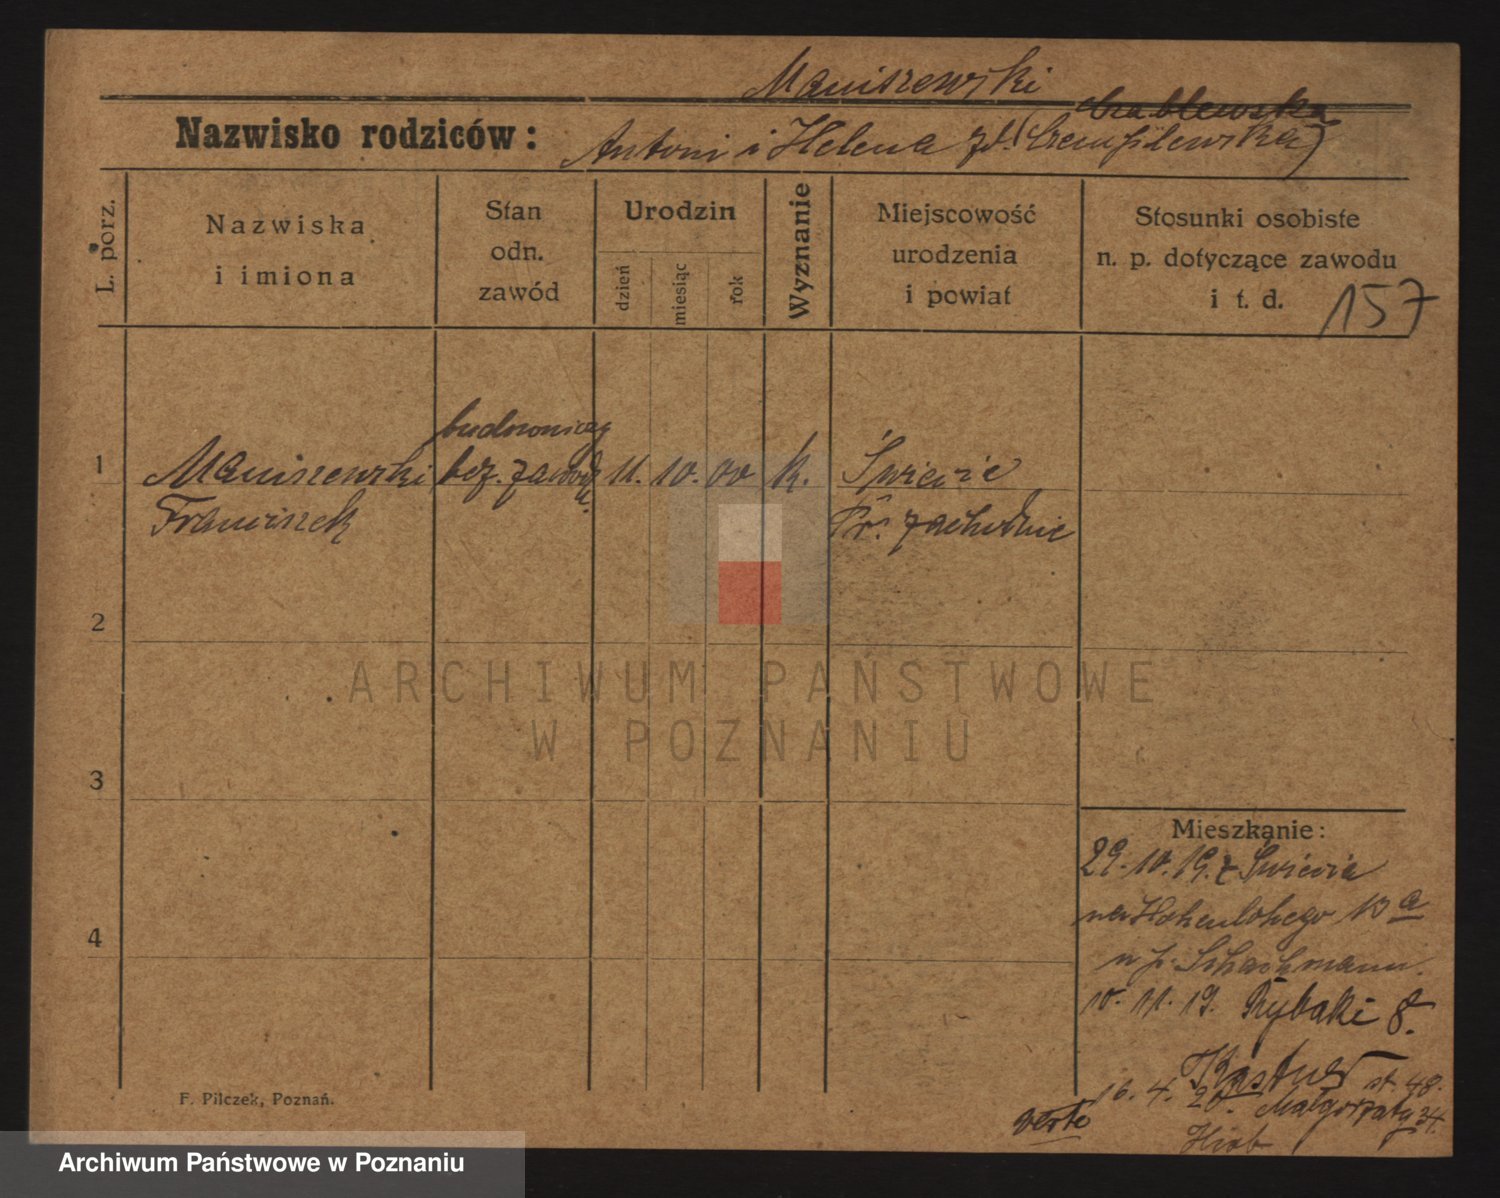 Maniszewski
Nazwisko rodziców:
Antoni i Helena zd.
L. porz.
Nazwiska
i imiona
Stan
odn.
zawód
Urodzin
dzień
miesiąc
rok
Wyznanie
Miejscowość
urodzenia
i powiat
Stosunki osobiste
n. p. dotyczące zawodu
i t. d.
157
budowniczy
1
Maniszewski
bez. zawodu.
11.
10.
00
k.
Świecie
Franciszek
Pr. zachodnie
2
ARCHIWUM PAŃSTWOWE
W POZNANIU
3
Mieszkanie:
29.10.19. z Świecia
na Hohenlohego 10 a
u p. Schachmann.
10.11.19. Rybaki 8.
4
Kastner
16.4.20. Małgorzaty 34.
st. 48.
Hiob
verte
F. Pilczek, Poznań.
Archiwum Państwowe w Poznaniu